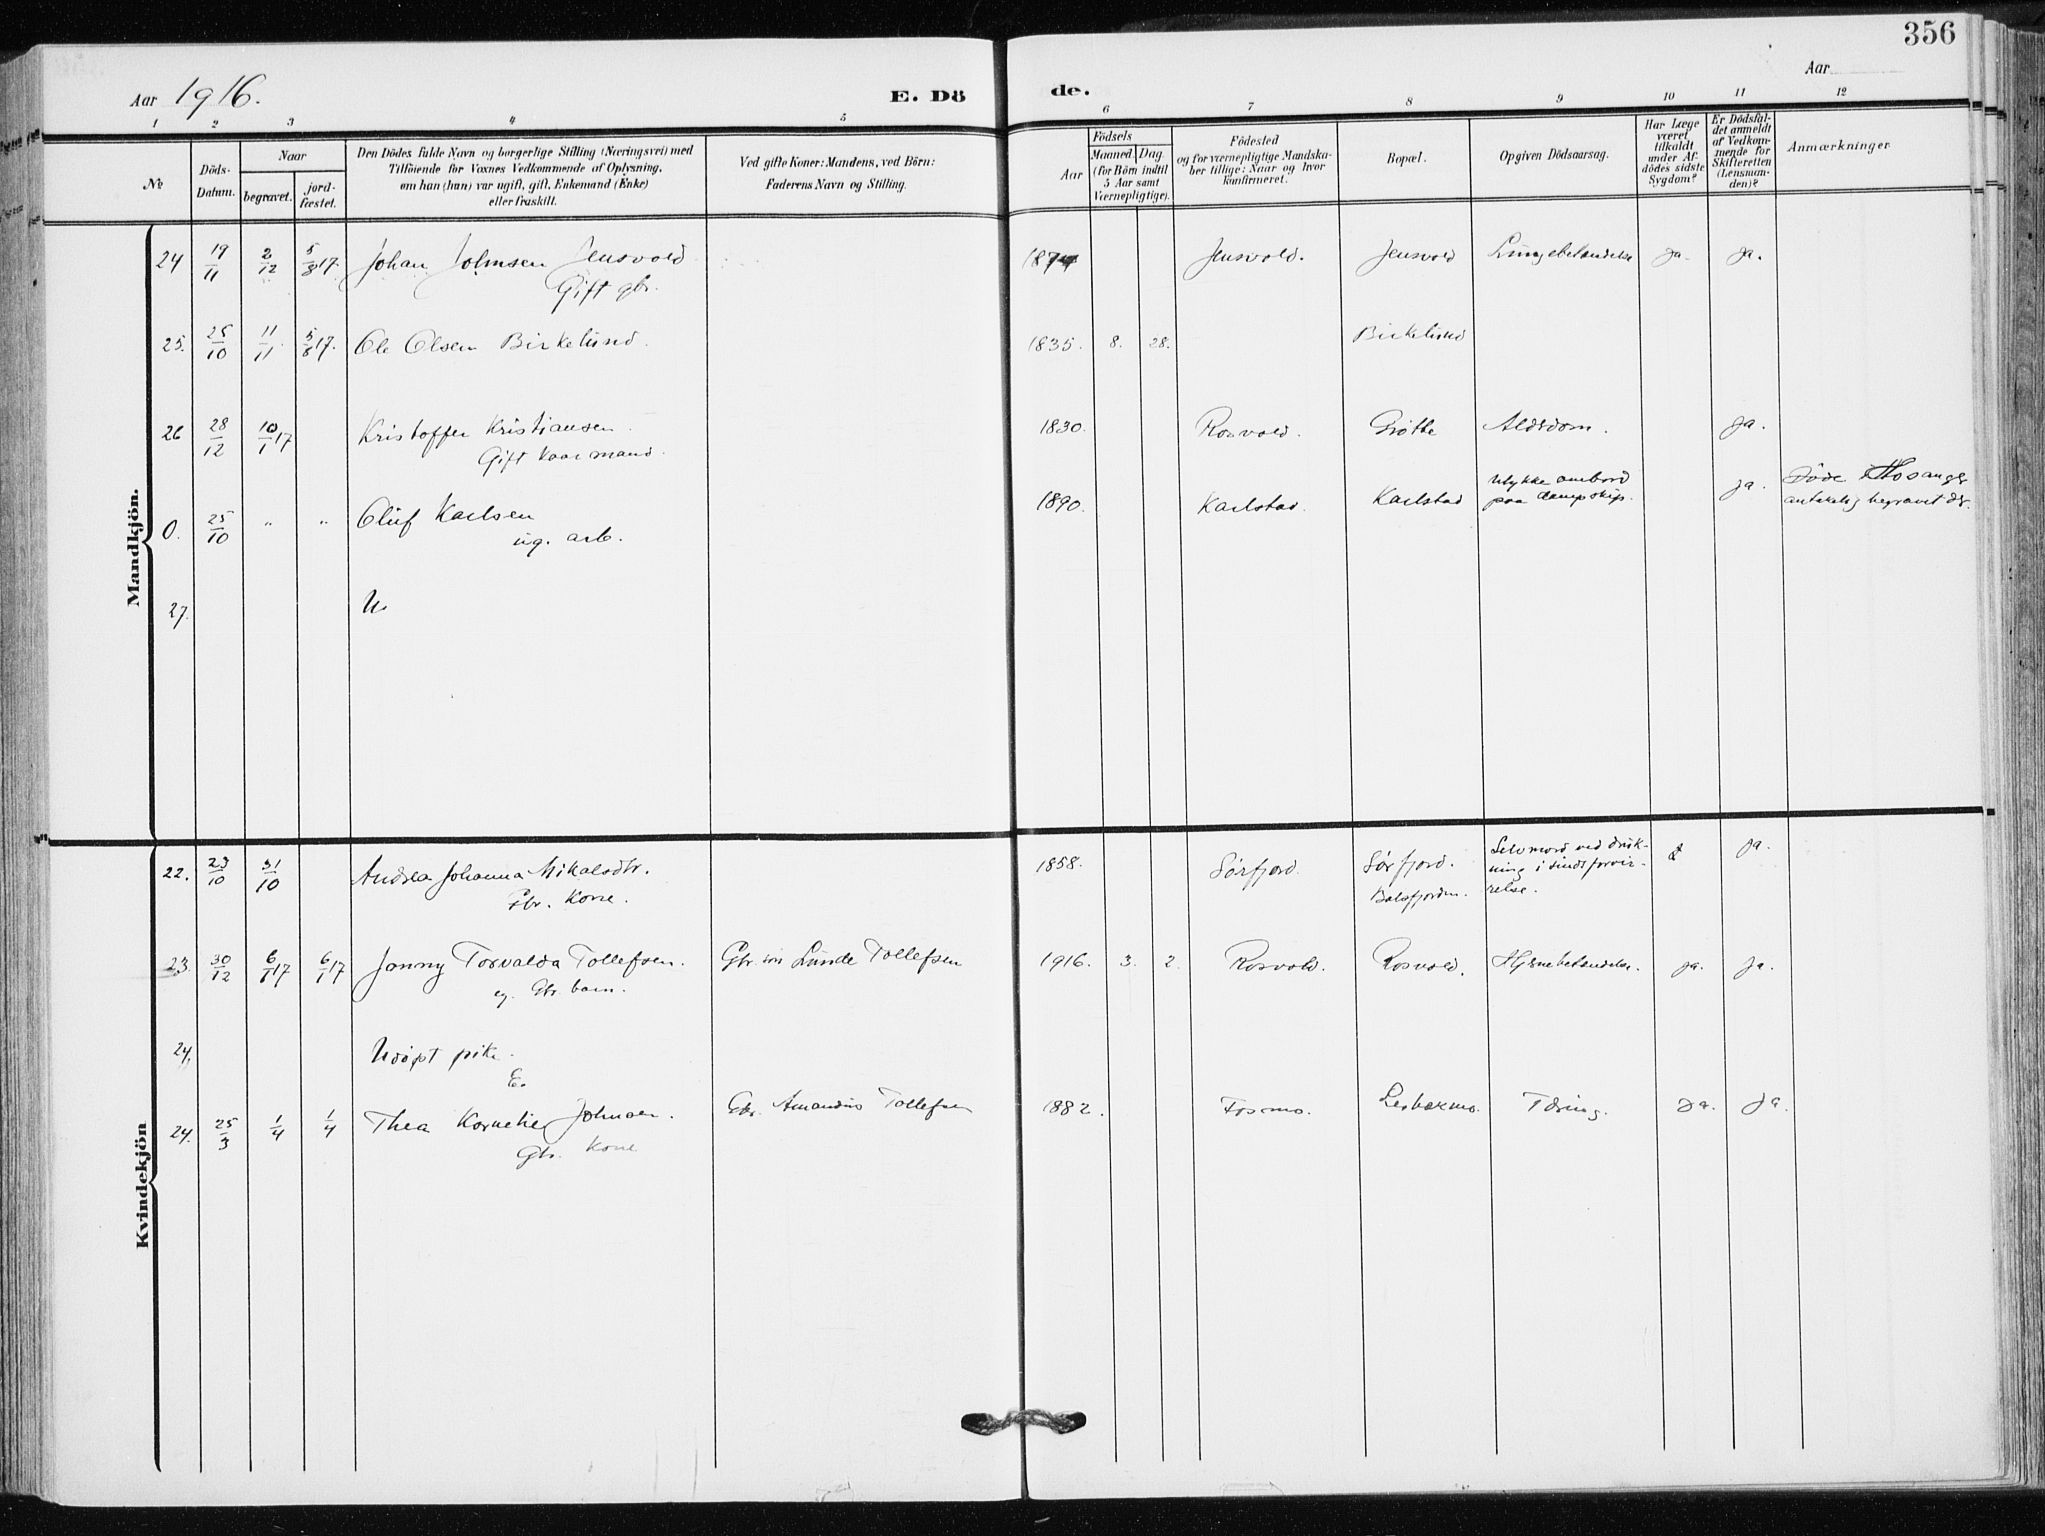 356
Aar 1916.
E. Dö
de.
Aar
1 2 3 4 5 6 7 8 9 10 11 12
№
Döds-
Datum.
Naar
begravet.
jord-
fæstet.
Den Dödes fulde Navn og borgerlige Stilling (Næringsvei) med
Tilföiende for Voxnes Vedkommende af Oplysning,
om han (hun) var ugift, gift, Enkemand (Enke)
eller fraskilt.
Ved gifte Koner: Mandens, ved Börn:
Faderens Navn og Stilling.
Födsels
Aar
Maaned. Dag.
(for Börn indtil
5 Aar samt
Værnepligtige).
Födested
og for værnepligtige Mandska-
ber tillige: Naar og hvor
konfirmeret.
Bopæl.
Opgiven Dödsaarsag.
Har Læge
været
tilkaldt
under Af-
dödes sidste
Sygdom?
Er Dödsfal-
det anmeldt
af Vedkom-
mende for
Skifteretten
(Lensman-
den)?
Anmærkninger
Mandkjön.
24 19/11 2/12 5/8 17. Johan Johnsen Jensvold 187 Jensvold. Jensvold Lungebetændelse ja. ja.
Gift gbr.
25. 25/10 11/11. 5/8 17. Ole Olsen Birkelund. 1835. 8. 28. Birkelund
26 28/12 10/1 17 Kristoffer Kristiansen. 1830. Rosvold. Grötte Alderdom. ja.
Gift kaarmand.
O. 25/10 " " Oluf Karlsen 1890. Karlstad. Karlstad Ulykke ombord ja. Döde i
paa dampskip. antakelig begravet der.
ug. arb.
27. U.
Kvindekjön
22. 23/10 31/10 Andrea Johanna Mikalsdtr. 1858. Sörfjord. Sörfjord. Selvmord ved druk- ja.
Gbr. Kone. Balsfjorden. ning i sindsforvir-
relse.
23. 30/12 6/1 17 6/1 17 Jonny Torvalda Tollefsen. Gbr. Lunde Tollefsen 1916. 3. 2. Rosvold. Rosvold. Hjernebetændelse. ja. ja.
eg. Gbr. barn.
24. Udöpt pike.
E.
24. 25/3 1/4 1/4 Thea Kornelie Johnsen. Gbr. Amandus Tollefsen 1882. Fosmo. Tæring. ja. ja.
Gbr. Kone